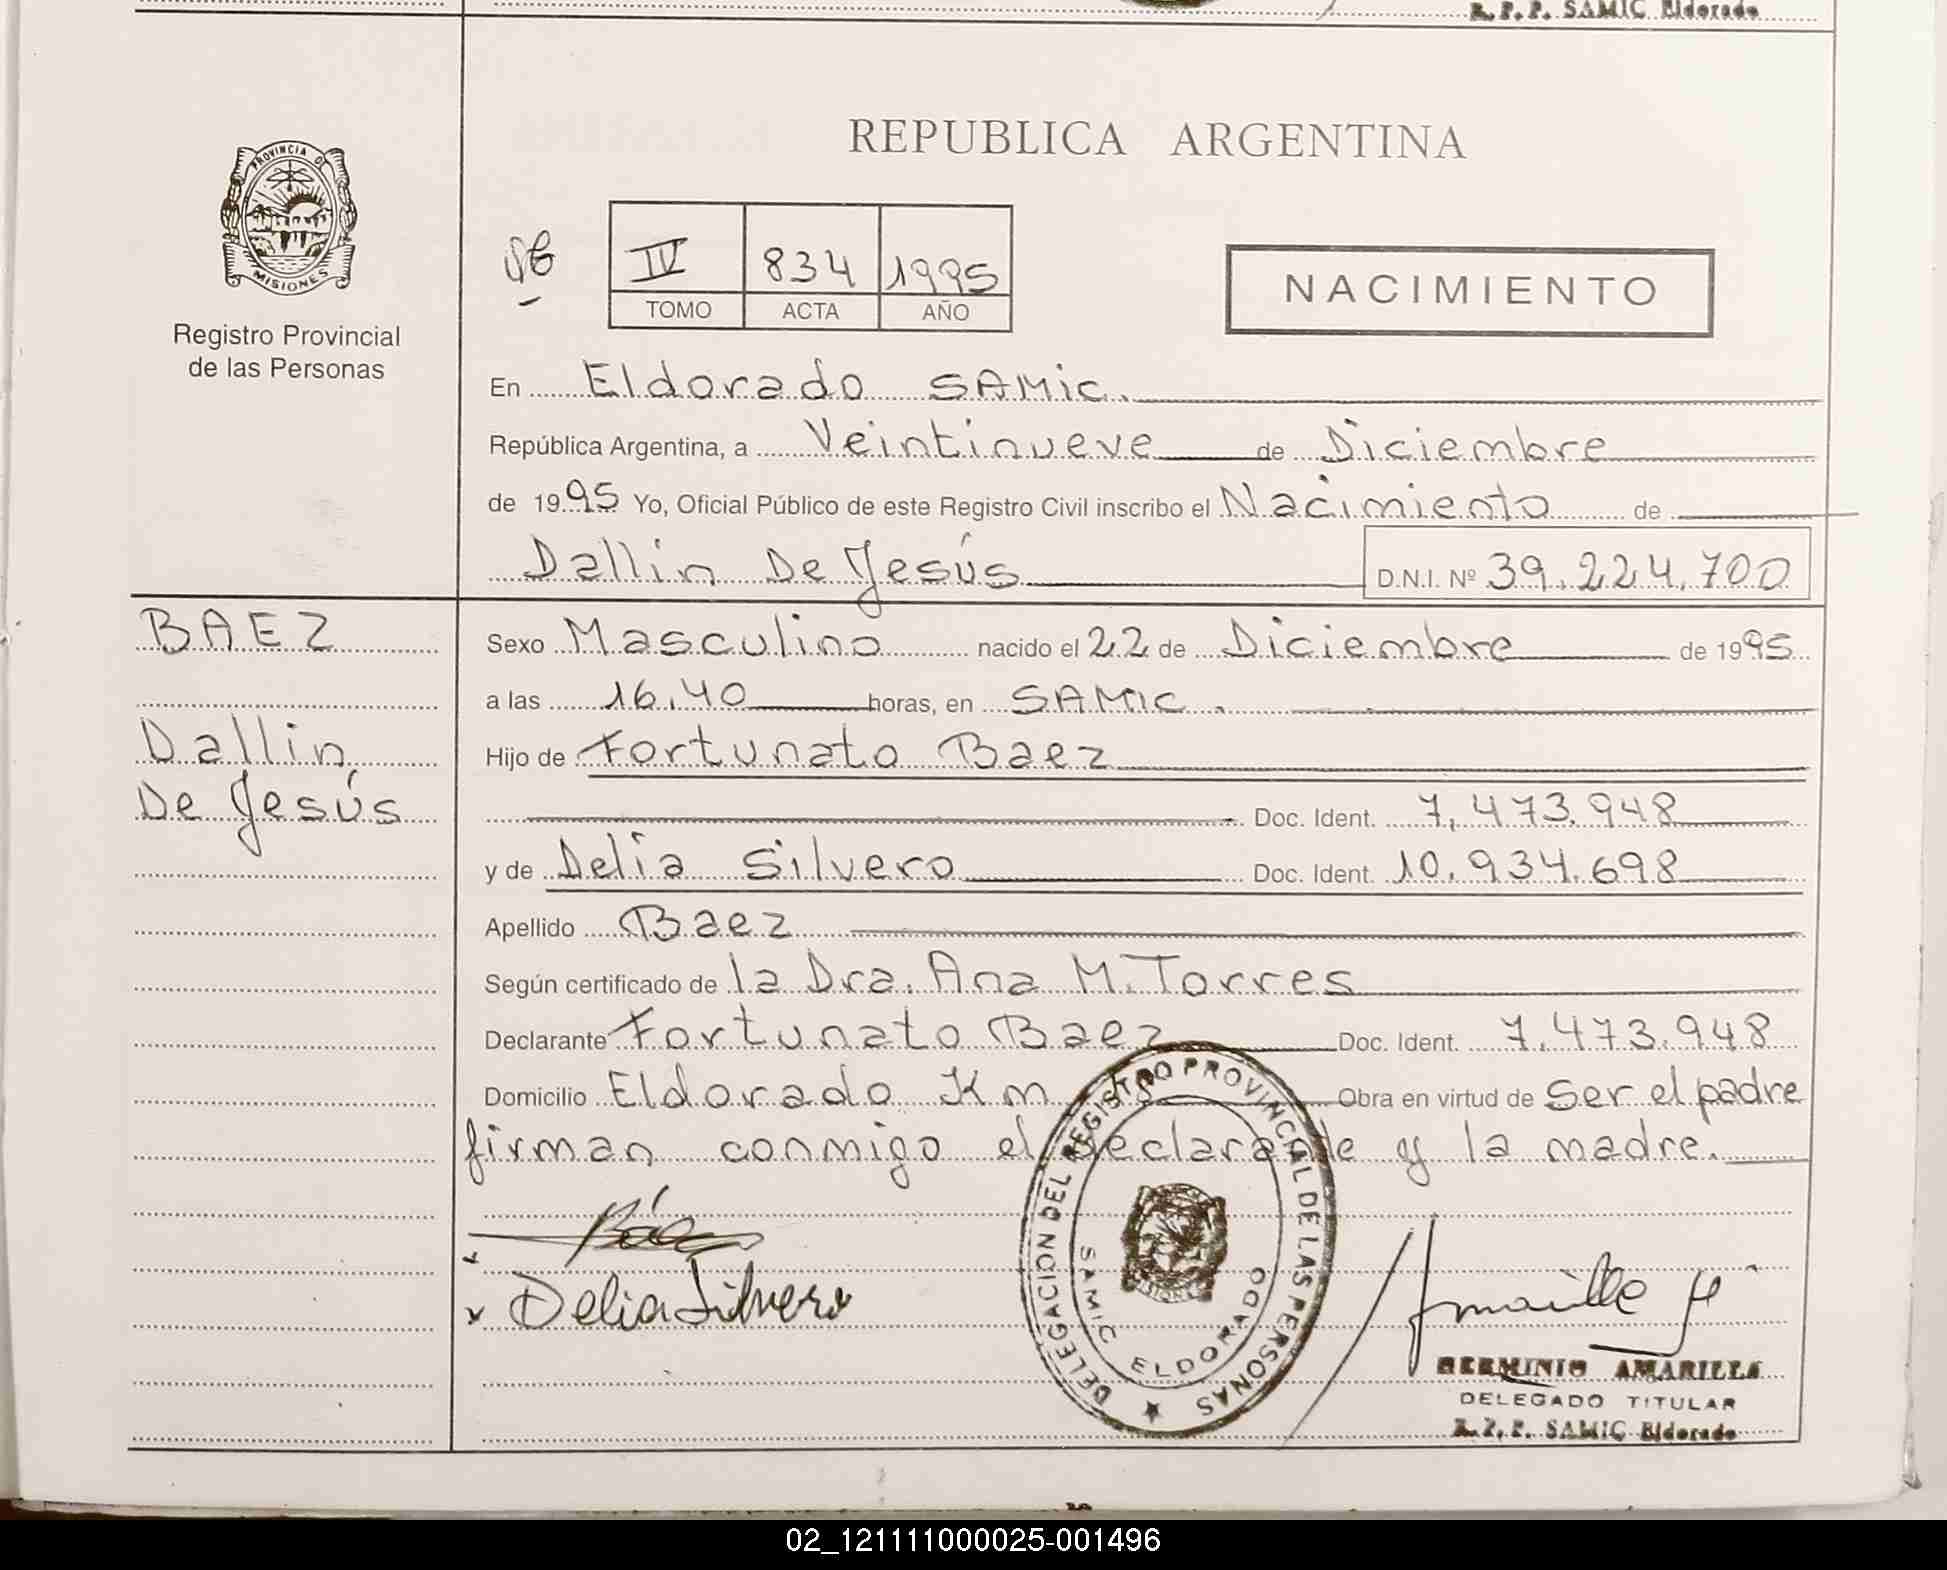 R. P. P. SAMIC Eldorado
PROVINCIA D
MISIONES
Registro Provincial
de las Personas
REPUBLICA ARGENTINA
IV 834 1995
TOMO ACTA AÑO
NACIMIENTO
En Eldorado SAMIC.
República Argentina, a Veintinueve de Diciembre
de 1995 Yo, Oficial Público de este Registro Civil inscribo el Nacimiento de
Dallin De Jesús D.N.I. Nº 39.224.700
BAEZ
Dallin
De Jesús
Sexo Masculino nacido el 22 de Diciembre de 1995
a las 16.40 horas, en SAMIC.
Hijo de Fortunato Baez
Doc. Ident. 7.473.948
y de Delia Silvero Doc. Ident. 10.934.698
Apellido Baez
Según certificado de la Dra. Ana M. Torres
Declarante Fortunato Baez Doc. Ident. 7.473.948
Domicilio Eldorado Km Obra en virtud de ser el padre
firman conmigo el declarante y la madre.
Báez
x Delia Silvero
DELEGACION DEL REGISTRO PROVINCIAL DE LAS PERSONAS
SAMIC ELDORADO
MISIONES
HERMINIO AMARILLA
DELEGADO TITULAR
R. P. P. SAMIC Eldorado
02_121111000025-001496